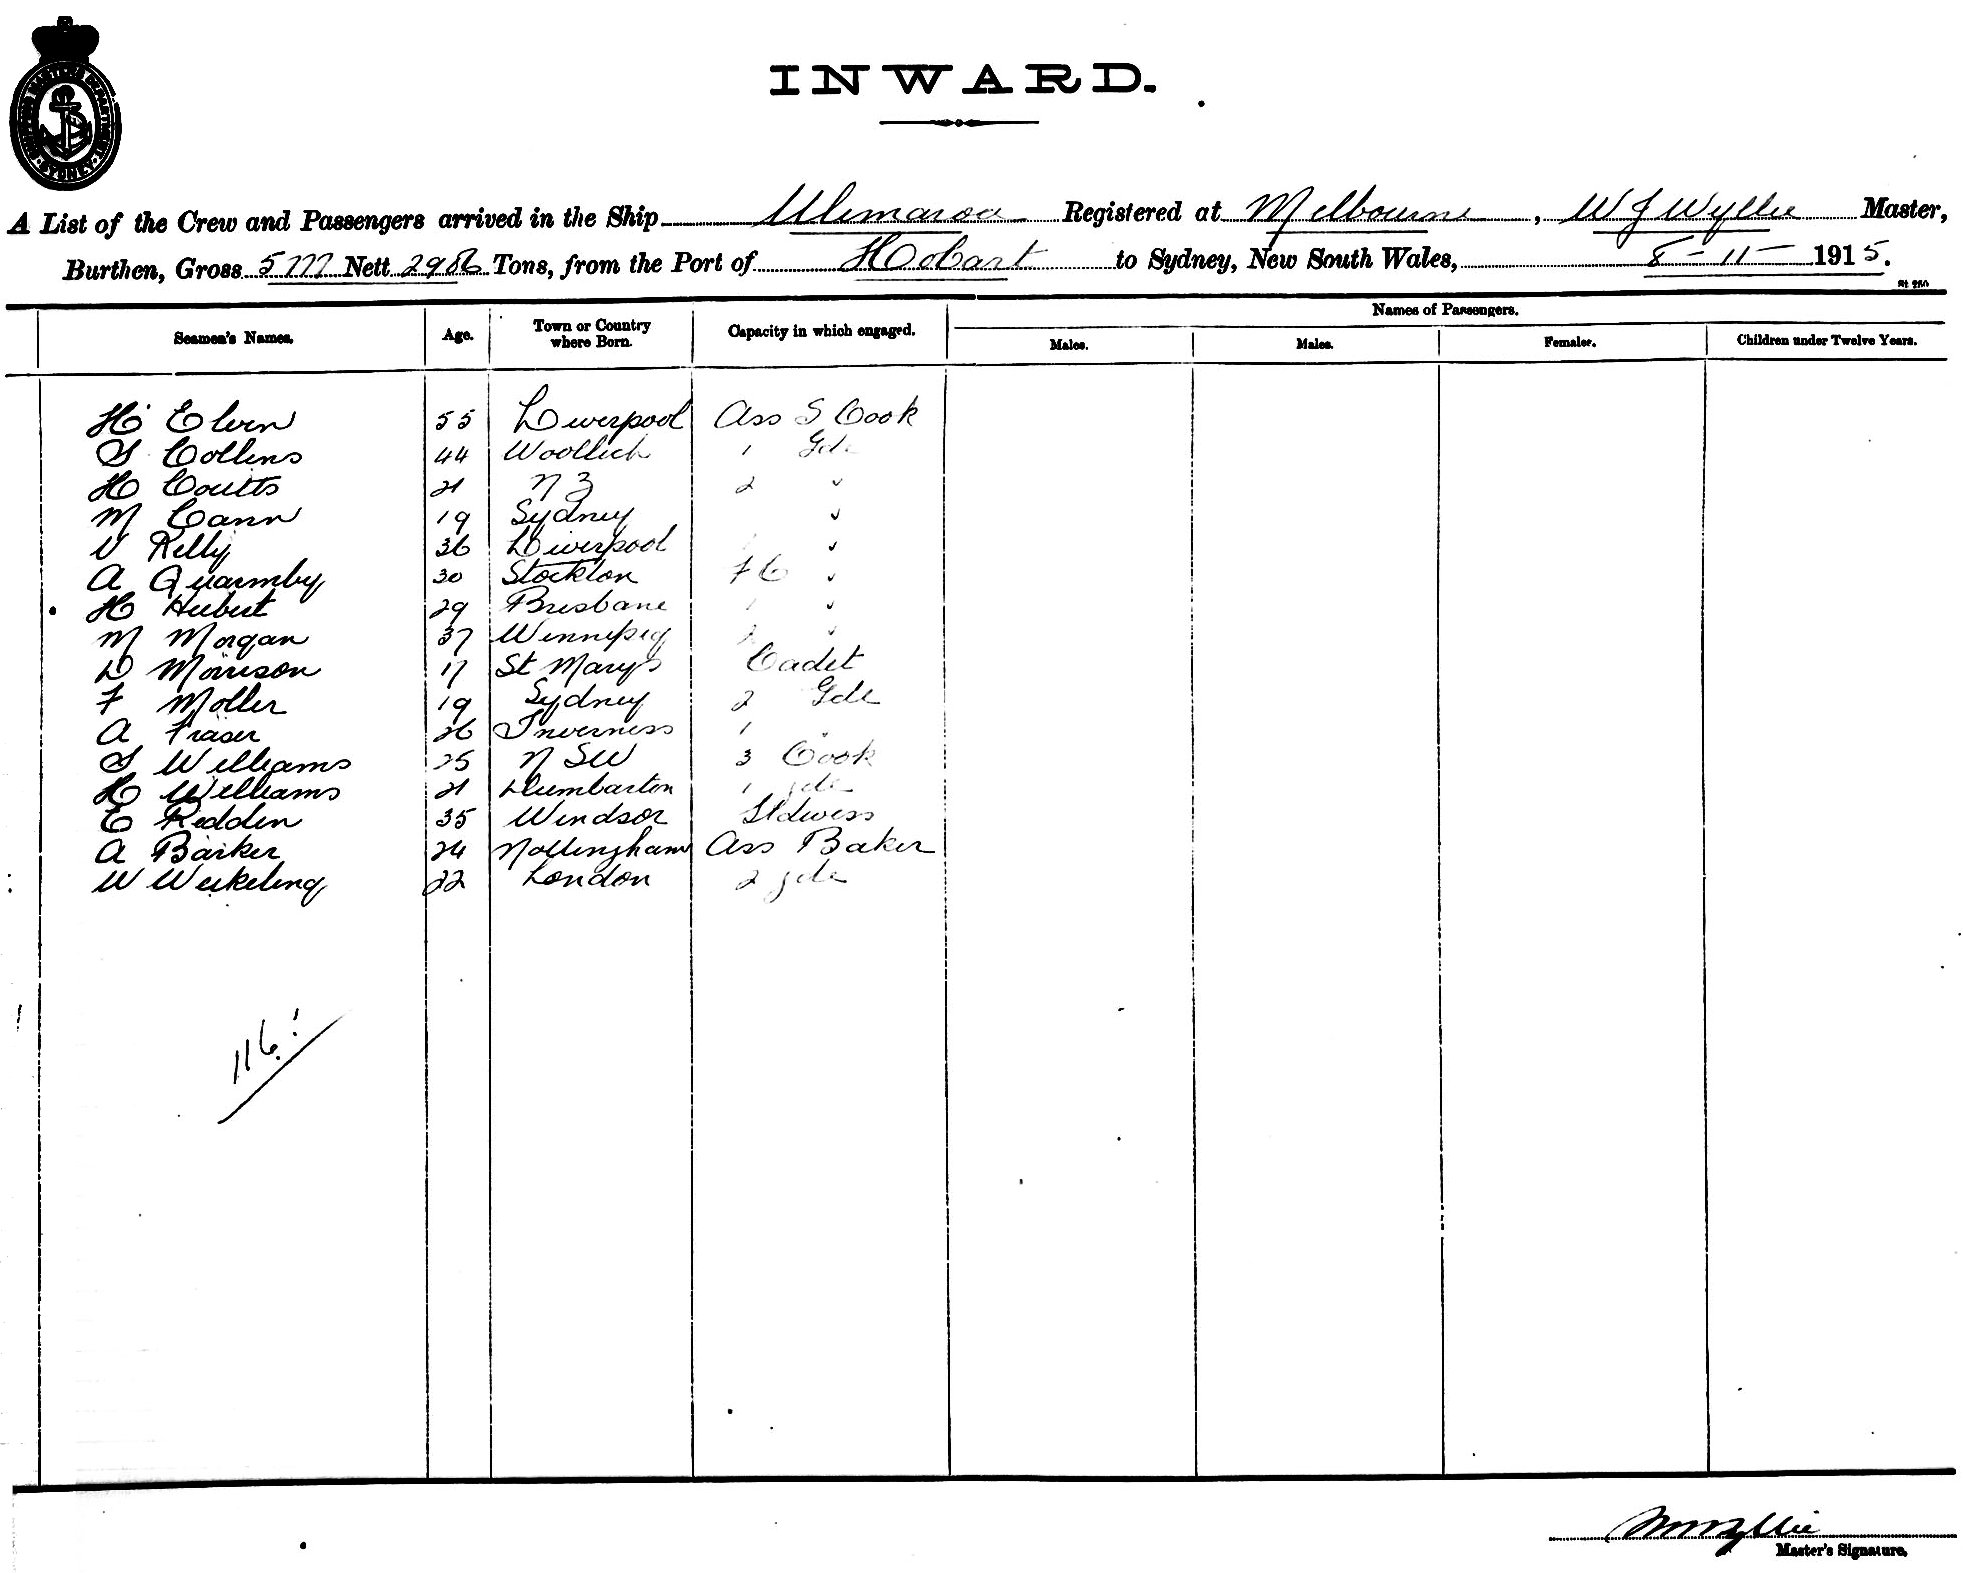 SHIPPING MASTERS DEPARTMENT SYDNEY
INWARD.
A List of the Crew and Passengers arrived in the Ship Ulimaroa Registered at Melbourne, W J Wyllie Master,
Burthen, Gross 5777 Nett 2986 Tons, from the Port of Hobart to Sydney, New South Wales, 8-11-1915.
Names of Passengers.
Seamen's Names. Age. Town or Country where Born. Capacity in which engaged. Males. Males. Females. Children under Twelve Years.
H Elvin 55 Liverpool Ass S Cook
S Collins 44 Woollich 1 Gde
H Coutts 21 N Z 2 "
M Cann 19 Sydney "
V Kelly 36 Liverpool "
A Quarmby 30 Stockton F C "
H Hubert 29 Brisbane 1 "
M Morgan 37 Winnipeg "
D Morrison 17 St Marys Cadet
F Moller 19 Sydney 2 Gde
A Fraser 26 Inverness 1
S Williams 25 N SW 3 Cook
H Williams 21 Dumbarton 1 gde
E Redden 35 Windsor Stdwess
A Barker 24 Nottingham Ass Baker
W Weekeling 22 London 2 gde
116
WJWyllie
Master's Signature.